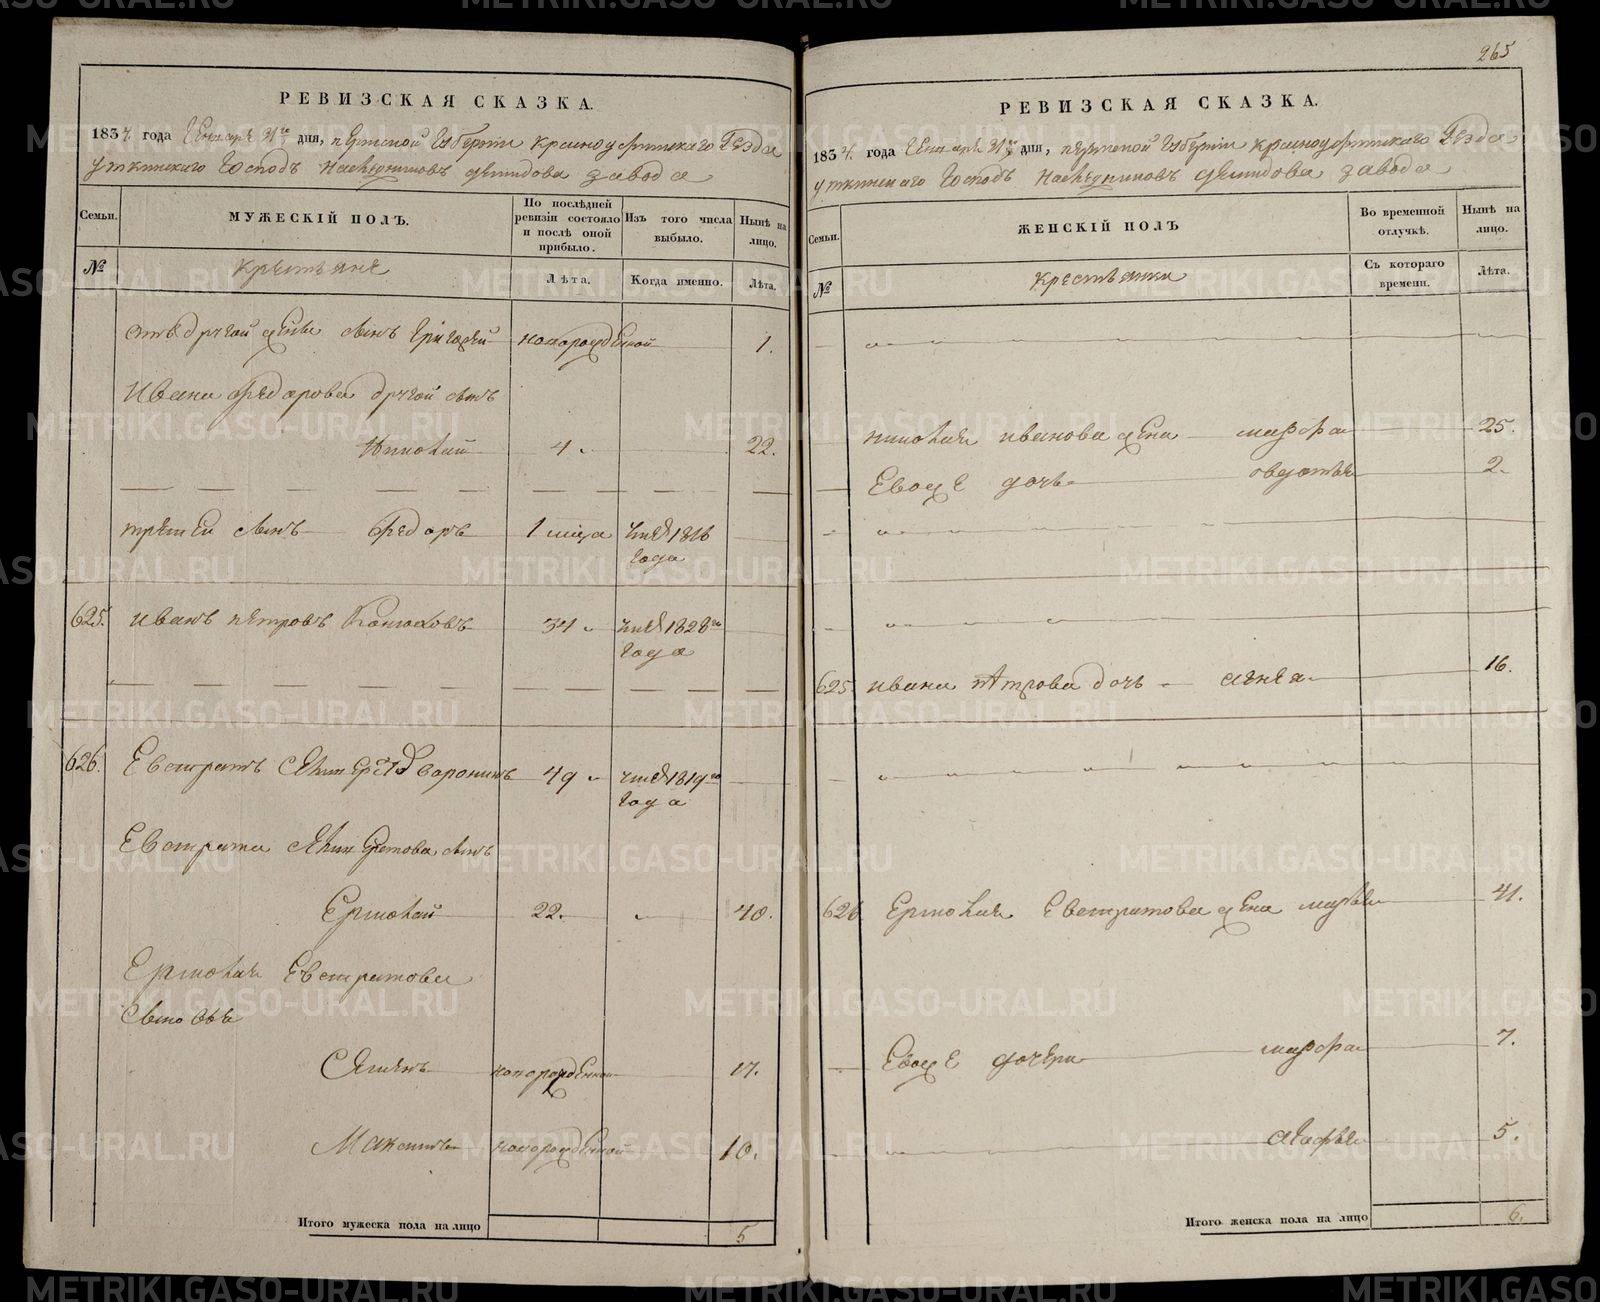 265
РЕВИЗСКАЯ СКАЗКА.
1834. года Генваря 31го дня, Пермской Губернии Красноуфимскаго Уезда
Уткинскаго Господъ Наследниковъ Демидова завода
Семьи.
МУЖЕСКІЙ ПОЛЪ.
По послѣдней ревизіи состояло и послѣ оной прибыло.
Изъ того числа выбыло.
Нынѣ на лицо.
№
Крестьяне
Лѣта.
Когда именно.
Лѣта.
отъ другой жены сынъ Григорей новорожденной 1.
Ивана Федорова другой сынъ
Николай 4 22.
третей сынъ Федоръ 1 мѣсяца 1816
года
625. Иванъ Петровъ 34 1828го
года
626. Евстратъ 49 1819го
года
Евстрата сынъ
Ермолай 22. 40.
Ермолая Евстратова
сыновья
Семенъ новорожденной 17.
Максимъ новорожденной 10.
Итого мужеска пола на лицо 5
РЕВИЗСКАЯ СКАЗКА.
1834. года Генваря 31го дня, Пермской Губернии Красноуфимскаго Уезда
Уткинскаго Господъ Наследниковъ Демидова завода
Семьи.
ЖЕНСКІЙ ПОЛЪ
Во временной отлучкѣ.
Нынѣ на лицо.
№
Крестьянки
Съ котораго времени.
Лѣта.
Николая Иванова жена Марфа 25.
Евоже дочь 2.
625. Ивана Петрова дочь 16.
626 Ермолая Евстратова жена Марья 41.
Евоже дочери Марфа 7.
Агафья 5.
Итого женска пола на лицо 6.
METRIKI.GASO-URAL.RU